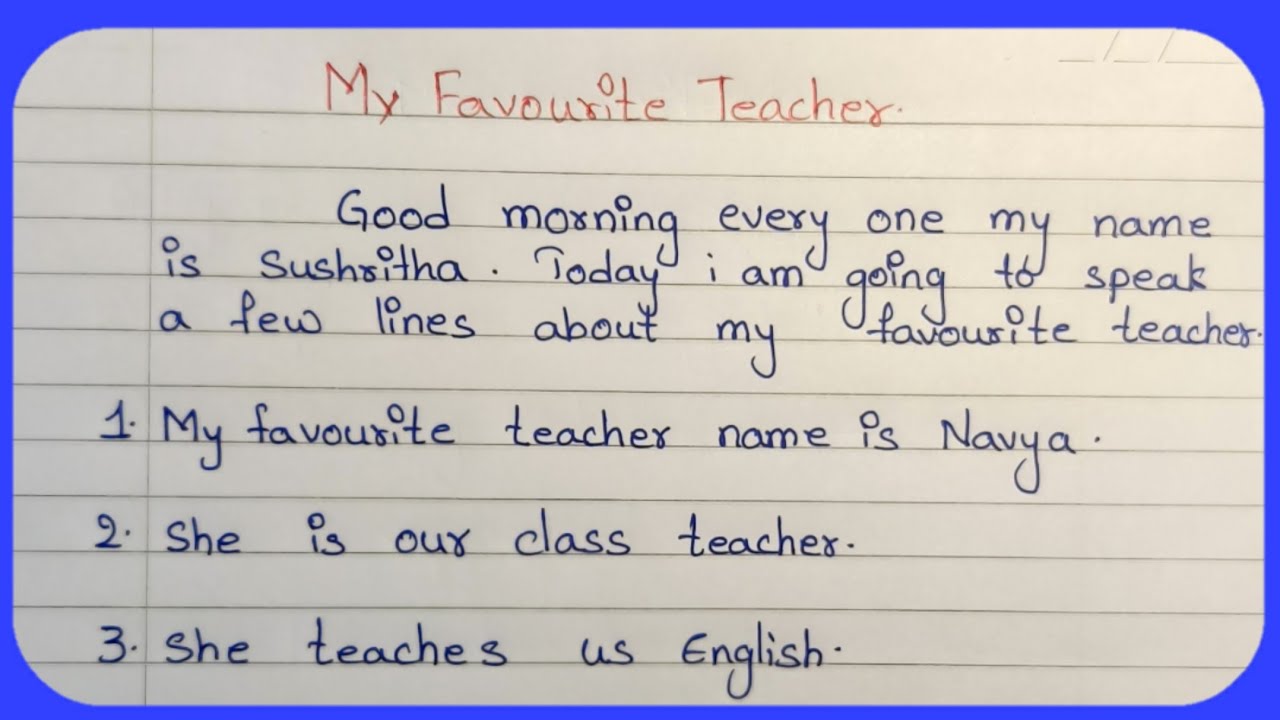 My Favourite Teacher.
Good morning every one my name
is Sushritha. Today i am going to speak
a few lines about my favourite teacher.
1. My favourite teacher name is Navya.
2. She is our class teacher.
3. She teaches us English.